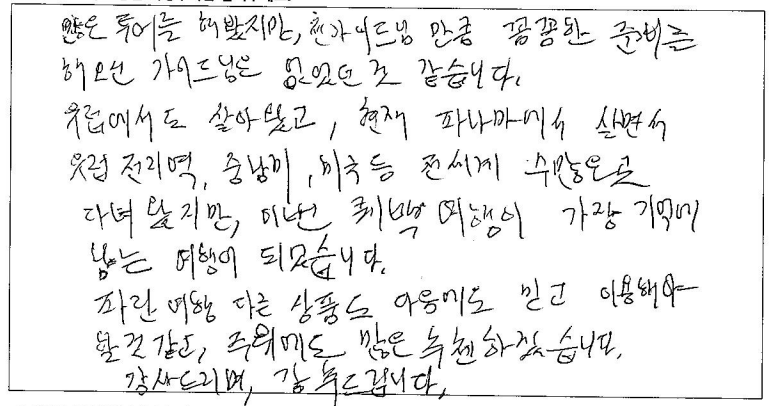 많은 투어를 해봤지만, 천가이드님 만큼 꼼꼼한 준비를
해오신 가이드님은 없었던 것 같습니다.
유럽에서도 살아봤고, 현재 파나마에서 살면서
유럽 전지역, 중남미, 미국 등 전세계 수많은 곳
다녀 왔지만, 이번 퀘백 여행이 가장 기억에
남는 여행이 되었습니다.
파란 여행 다른 상품도 다음에도 믿고 이용해야
할 것 같고, 주위에도 많은 추천하겠습니다.
감사드리며, 강추드립니다.